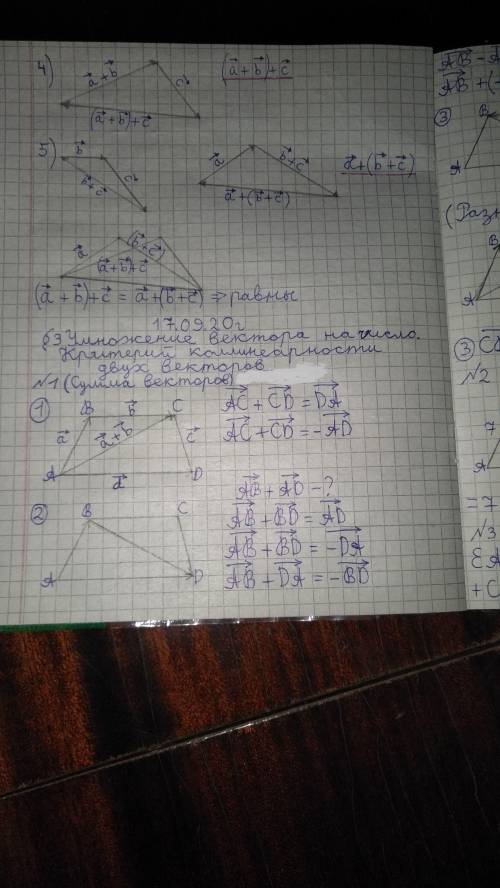 4) a⃗+b⃗ c⃗ (a⃗+b⃗)+c⃗
(a⃗+b⃗)+c⃗
5) b⃗ c⃗ b⃗+c⃗ a⃗ b⃗+c⃗ a⃗+(b⃗+c⃗)
a⃗+(b⃗+c⃗)
a⃗ (b⃗+c⃗)
(a⃗+b⃗)+c⃗
(a⃗+b⃗)+c⃗ = a⃗+(b⃗+c⃗) ⇒ равны
17.09.20г
§3 Умножение вектора на число.
Критерий коллинеарности
двух векторов
№1 (Сумма векторов)
① B b⃗ C
a⃗ a⃗+b⃗ c⃗
A d⃗ D
AC⃗ + CD⃗ = DA⃗
AC⃗ + CD⃗ = -AD⃗
② B C
A D
AB⃗ + AD⃗ - ?
AB⃗ + BD⃗ = AD⃗
AB⃗ + BD⃗ = -DA⃗
AB⃗ + DA⃗ = -BD⃗
AB⃗ -
AB⃗ + (-
③ B
A
(Разн
B
A
③
№2
7
A
= 7
№3
+ C